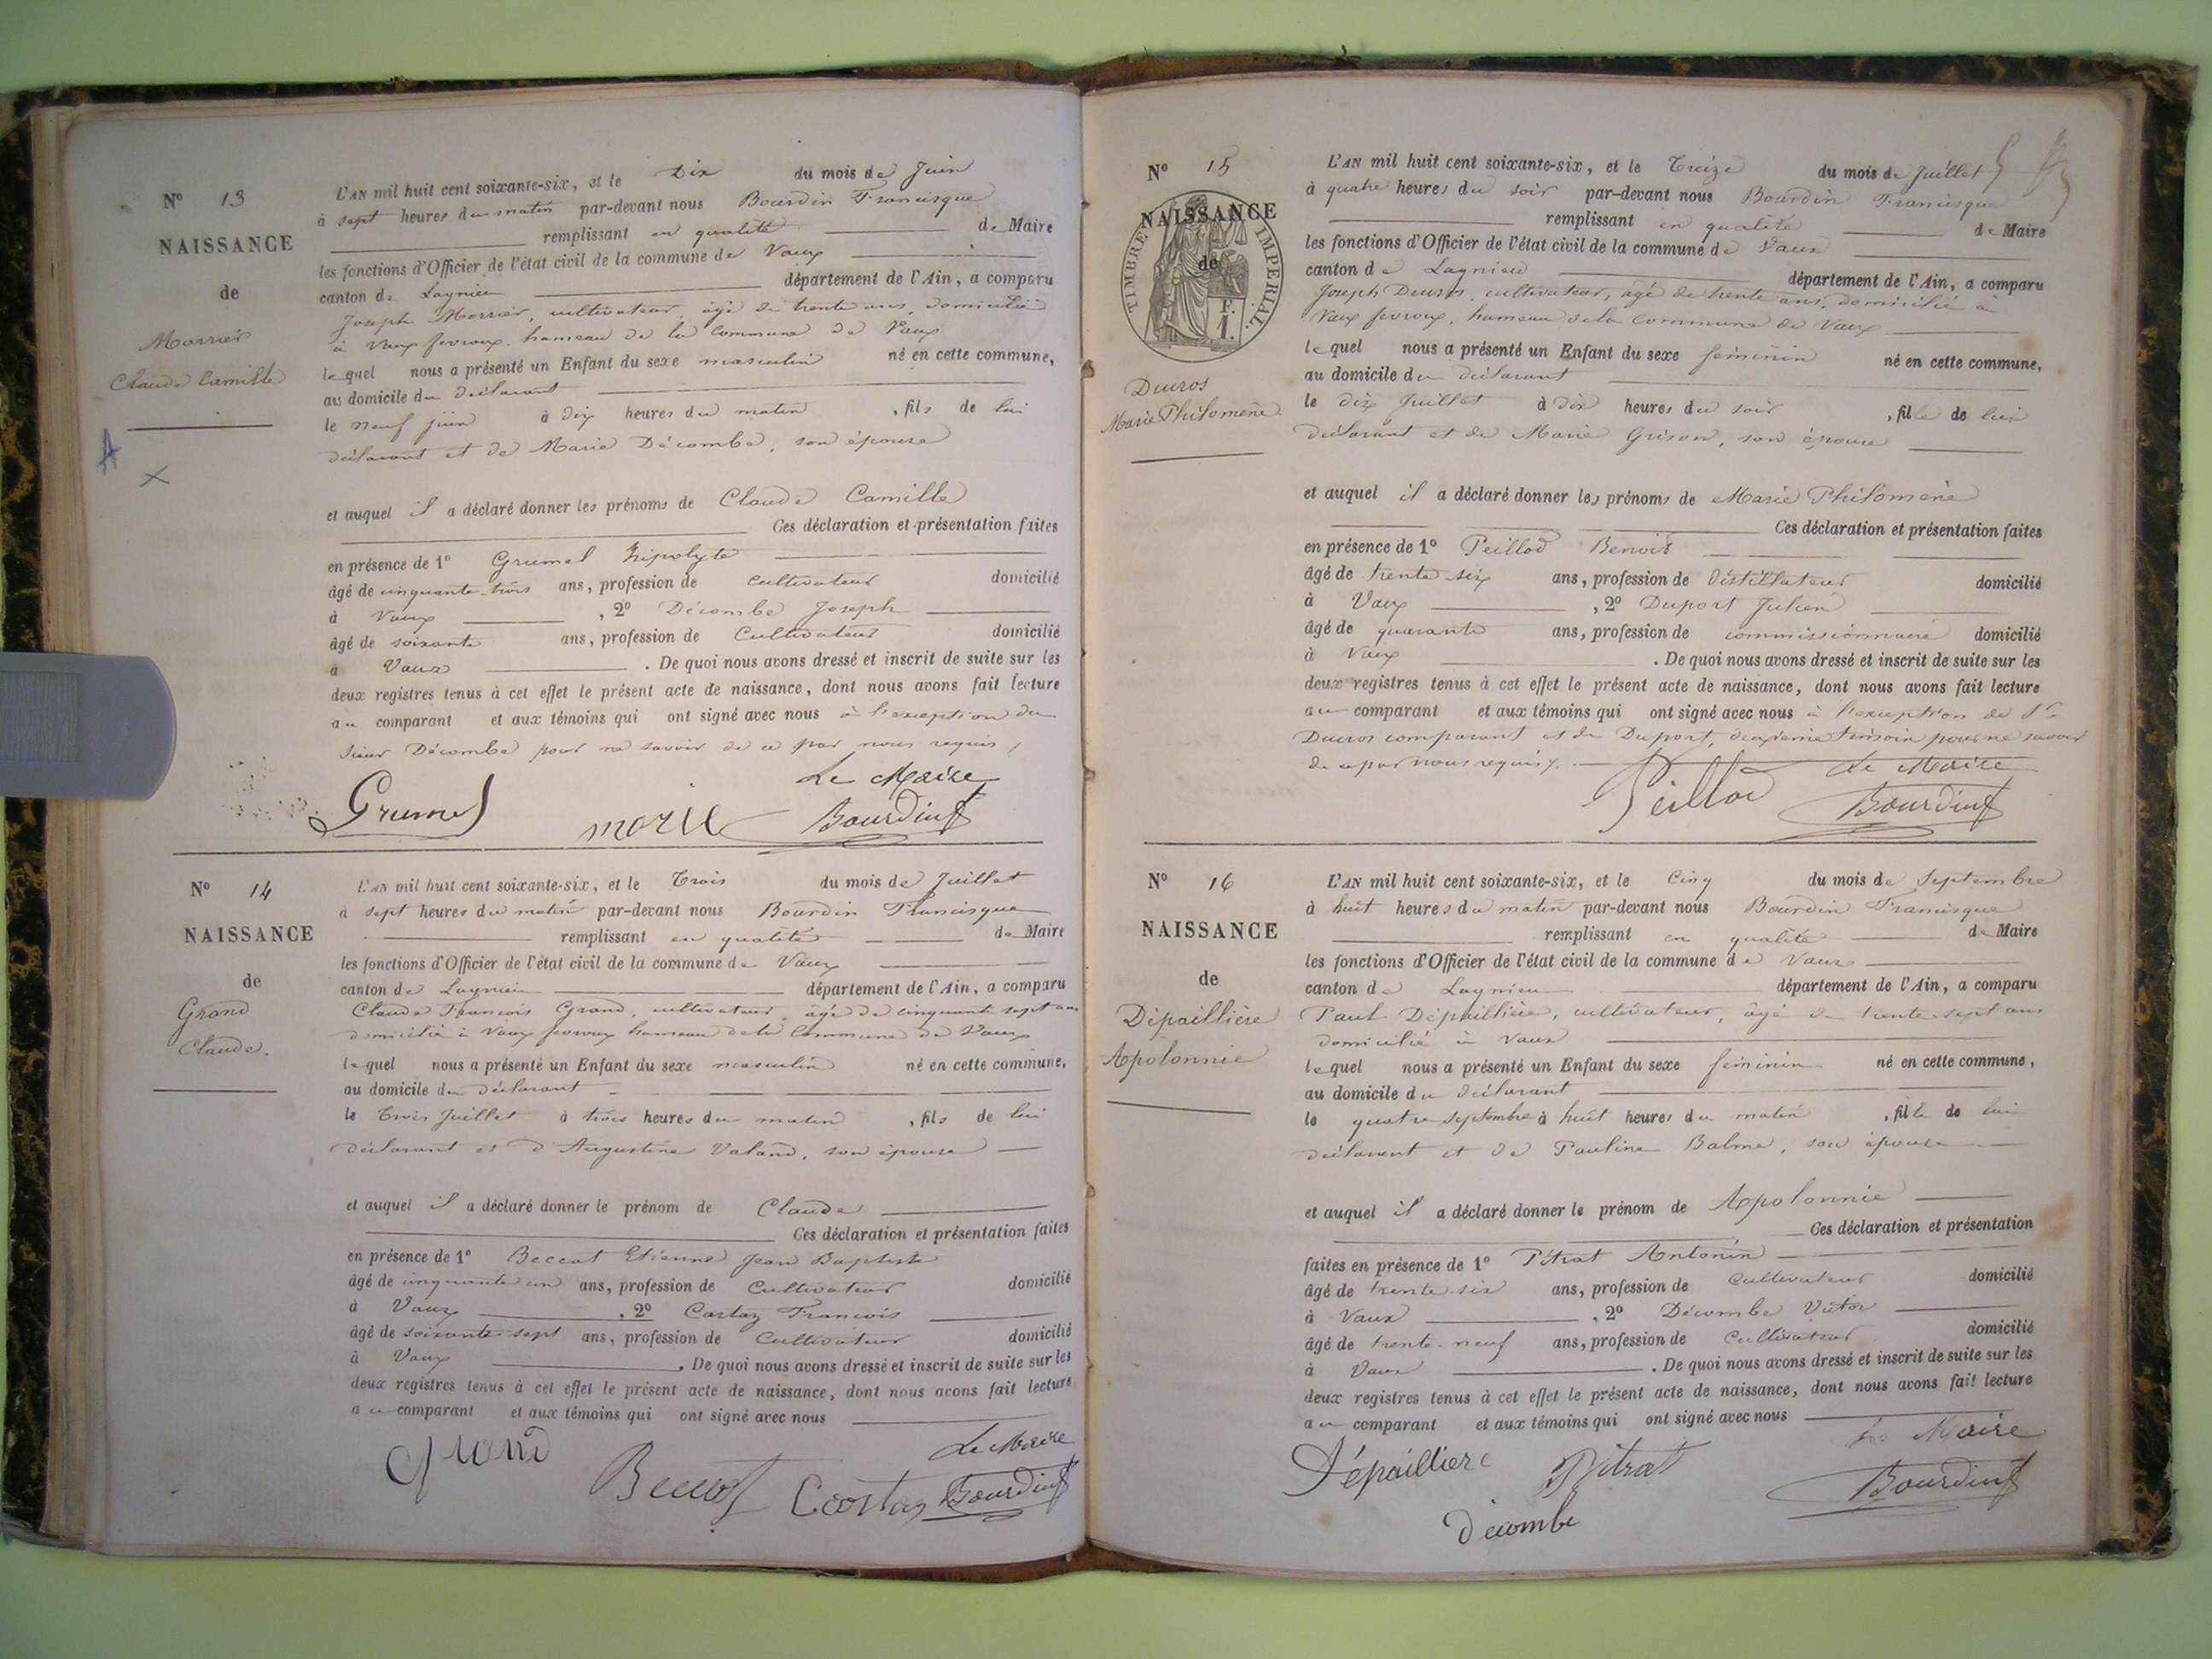 N° 13
NAISSANCE
de
Morrier
Claude Camille
L'AN mil huit cent soixante-six, et le Dix du mois de Juin
à sept heures du matin par-devant nous Bourdin Francisque
remplissant en qualité de Maire
les fonctions d'Officier de l'état civil de la commune de Vaux
canton de Lagnieu département de l'Ain, a comparu
Joseph Morrier, cultivateur, âgé de trente ans, domicilié
à Vaux fevroux, hameau de la Commune de Vaux
lequel nous a présenté un Enfant du sexe masculin né en cette commune,
au domicile du déclarant
le neuf juin à dix heures du matin, fils de lui
déclarant et de Marie Décombe, son épouse
et auquel il a déclaré donner les prénoms de Claude Camille
Ces déclaration et présentation faites
en présence de 1° Grumel Hipolyte
âgé de cinquante-trois ans, profession de cultivateur domicilié
à Vaux, 2° Décombe Joseph
âgé de soixante ans, profession de Cultivateur domicilié
à Vaux. De quoi nous avons dressé et inscrit de suite sur les
deux registres tenus à cet effet le présent acte de naissance, dont nous avons fait lecture
au comparant et aux témoins qui ont signé avec nous à l'exception du
sieur Décombe pour ne savoir de ce par nous requis
Le Maire
Grumel Bourdin
N° 14
NAISSANCE
de
Grand
Claude.
L'AN mil huit cent soixante-six, et le Trois du mois de Juillet
à sept heures du matin par-devant nous Bourdin Francisque
remplissant en qualité de Maire
les fonctions d'Officier de l'état civil de la commune de Vaux
canton de Lagnieu département de l'Ain, a comparu
Claude François Grand, cultivateur, âgé de cinquante sept ans
domicilié à Vaux fevroux hameau de la Commune de Vaux
lequel nous a présenté un Enfant du sexe masculin né en cette commune,
au domicile du déclarant
le Trois Juillet à trois heures du matin, fils de lui
déclarant et d'Augustine Valand, son épouse
et auquel il a déclaré donner le prénom de Claude
Ces déclaration et présentation faites
en présence de 1° Beccat Etienne Jean Baptiste
âgé de cinquante un ans, profession de Cultivateur domicilié
à Vaux, 2° Cartaz François
âgé de soixante-sept ans, profession de Cultivateur domicilié
à Vaux. De quoi nous avons dressé et inscrit de suite sur les
deux registres tenus à cet effet le présent acte de naissance, dont nous avons fait lecture
au comparant et aux témoins qui ont signé avec nous
Le Maire
grand Beccat Cartaz Bourdin
N° 15
NAISSANCE
de
TIMBRE IMPERIAL
F.
1.
Ducros
Marie Philomène
L'AN mil huit cent soixante-six, et le Treize du mois de Juillet
à quatre heures du soir par-devant nous Bourdin Francisque
remplissant en qualité de Maire
les fonctions d'Officier de l'état civil de la commune de Vaux
canton de Lagnieu département de l'Ain, a comparu
Joseph Ducros, cultivateur, âgé de trente ans, domicilié à
Vaux fevroux, hameau de la Commune de Vaux
lequel nous a présenté un Enfant du sexe féminin né en cette commune,
au domicile du déclarant
le dix Juillet à dix heures du soir, fille de lui
déclarant et de Marie Grison, son épouse
et auquel il a déclaré donner les prénoms de Marie Philomène
Ces déclaration et présentation faites
en présence de 1° Peillod Benoit
âgé de trente-six ans, profession de distillateur domicilié
à Vaux, 2° Duport Julien
âgé de quarante ans, profession de commissionnaire domicilié
à Vaux. De quoi nous avons dressé et inscrit de suite sur les
deux registres tenus à cet effet le présent acte de naissance, dont nous avons fait lecture
au comparant et aux témoins qui ont signé avec nous à l'exception de Sr
Ducros comparant et de Duport, deuxième témoin pour ne savoir
de ce par nous requis. Le Maire
Peillod Bourdin
N° 16
NAISSANCE
de
Dépaillière
Apolonnie
L'AN mil huit cent soixante-six, et le Cinq du mois de Septembre
à huit heures du matin par-devant nous Bourdin Francisque
remplissant en qualité de Maire
les fonctions d'Officier de l'état civil de la commune de Vaux
canton de Lagnieu département de l'Ain, a comparu
Paul Dépaillière, cultivateur, âgé de trente-sept ans
domicilié à Vaux
lequel nous a présenté un Enfant du sexe féminin né en cette commune,
au domicile du déclarant
le quatre septembre à huit heures du matin, fille de lui
déclarant et de Pauline Balme, son épouse
et auquel il a déclaré donner le prénom de Apolonnie
Ces déclaration et présentation
faites en présence de 1° Pitrat Antonin
âgé de trente-six ans, profession de Cultivateur domicilié
à Vaux, 2° Décombe Victor
âgé de trente-neuf ans, profession de Cultivateur domicilié
à Vaux. De quoi nous avons dressé et inscrit de suite sur les
deux registres tenus à cet effet le présent acte de naissance, dont nous avons fait lecture
au comparant et aux témoins qui ont signé avec nous
Le Maire
Dépaillière Pitrat Bourdin
Décombe